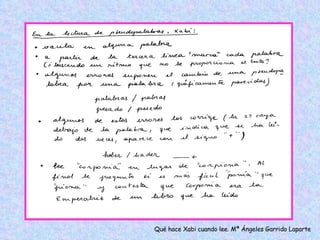 En la lectura de pseudopalabras, Xabi:
• vacila en alguna palabra
• a partir de la tercera línea "marca" cada palabra
(¿buscando un ritmo que no le proporciona el texto?
• algunos errores suponen el cambio de una pseudopa
labra por una palabra (gráficamente parecidas)
palabras / pabras
pesado / pasedo
• algunos de estos errores los corrige (la raya
debajo de la palabra, que indica que se ha leí-
do dos veces, aparece con el signo "+")
hader
• lee "corponia" en lugar de "corpiona". Al
final le pregunto si es más fácil "ponia" que
"piona" y contesta que Corponia era la
Emperatriz de un libro que ha leído
Qué hace Xabi cuando lee. Mª Ángeles Garrido Laparte